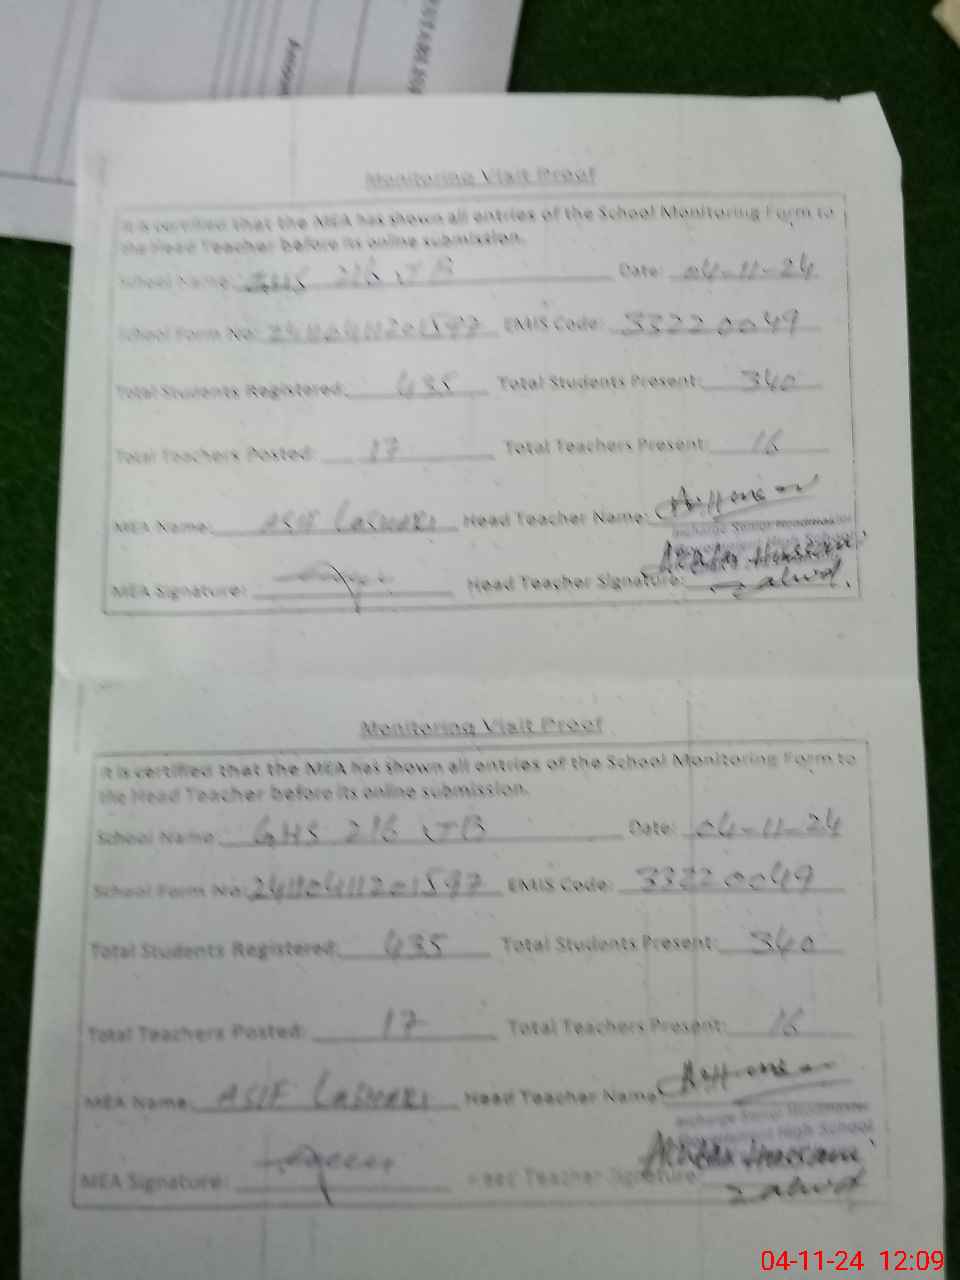 Amoun
Monitoring Visit Proof
It is certified that the MEA has shown all entries of the School Monitoring Form to
the Head Teacher before its online submission.
School Name: GHS 216 JB Date: 04-11-24
School Form No: EMIS Code: 33220049
Total Students Registered: 435 Total Students Present: 340
Total Teachers Posted: 17 Total Teachers Present: 16
MEA Name: ASIF Head Teacher Name:
Incharge Senior Headmaster
High School
MEA Signature: Head Teacher Signature:
Monitoring Visit Proof
It is certified that the MEA has shown all entries of the School Monitoring Form to
the Head Teacher before its online submission.
School Name: GHS 216 JB Date: 04-11-24
School Form No: EMIS Code: 33220049
Total Students Registered: 435 Total Students Present: 340
Total Teachers Posted: 17 Total Teachers Present: 16
MEA Name: ASIF Head Teacher Name:
Incharge Senior Headmaster
Government High School
MEA Signature: Head Teacher Signature:
04-11-24 12:09